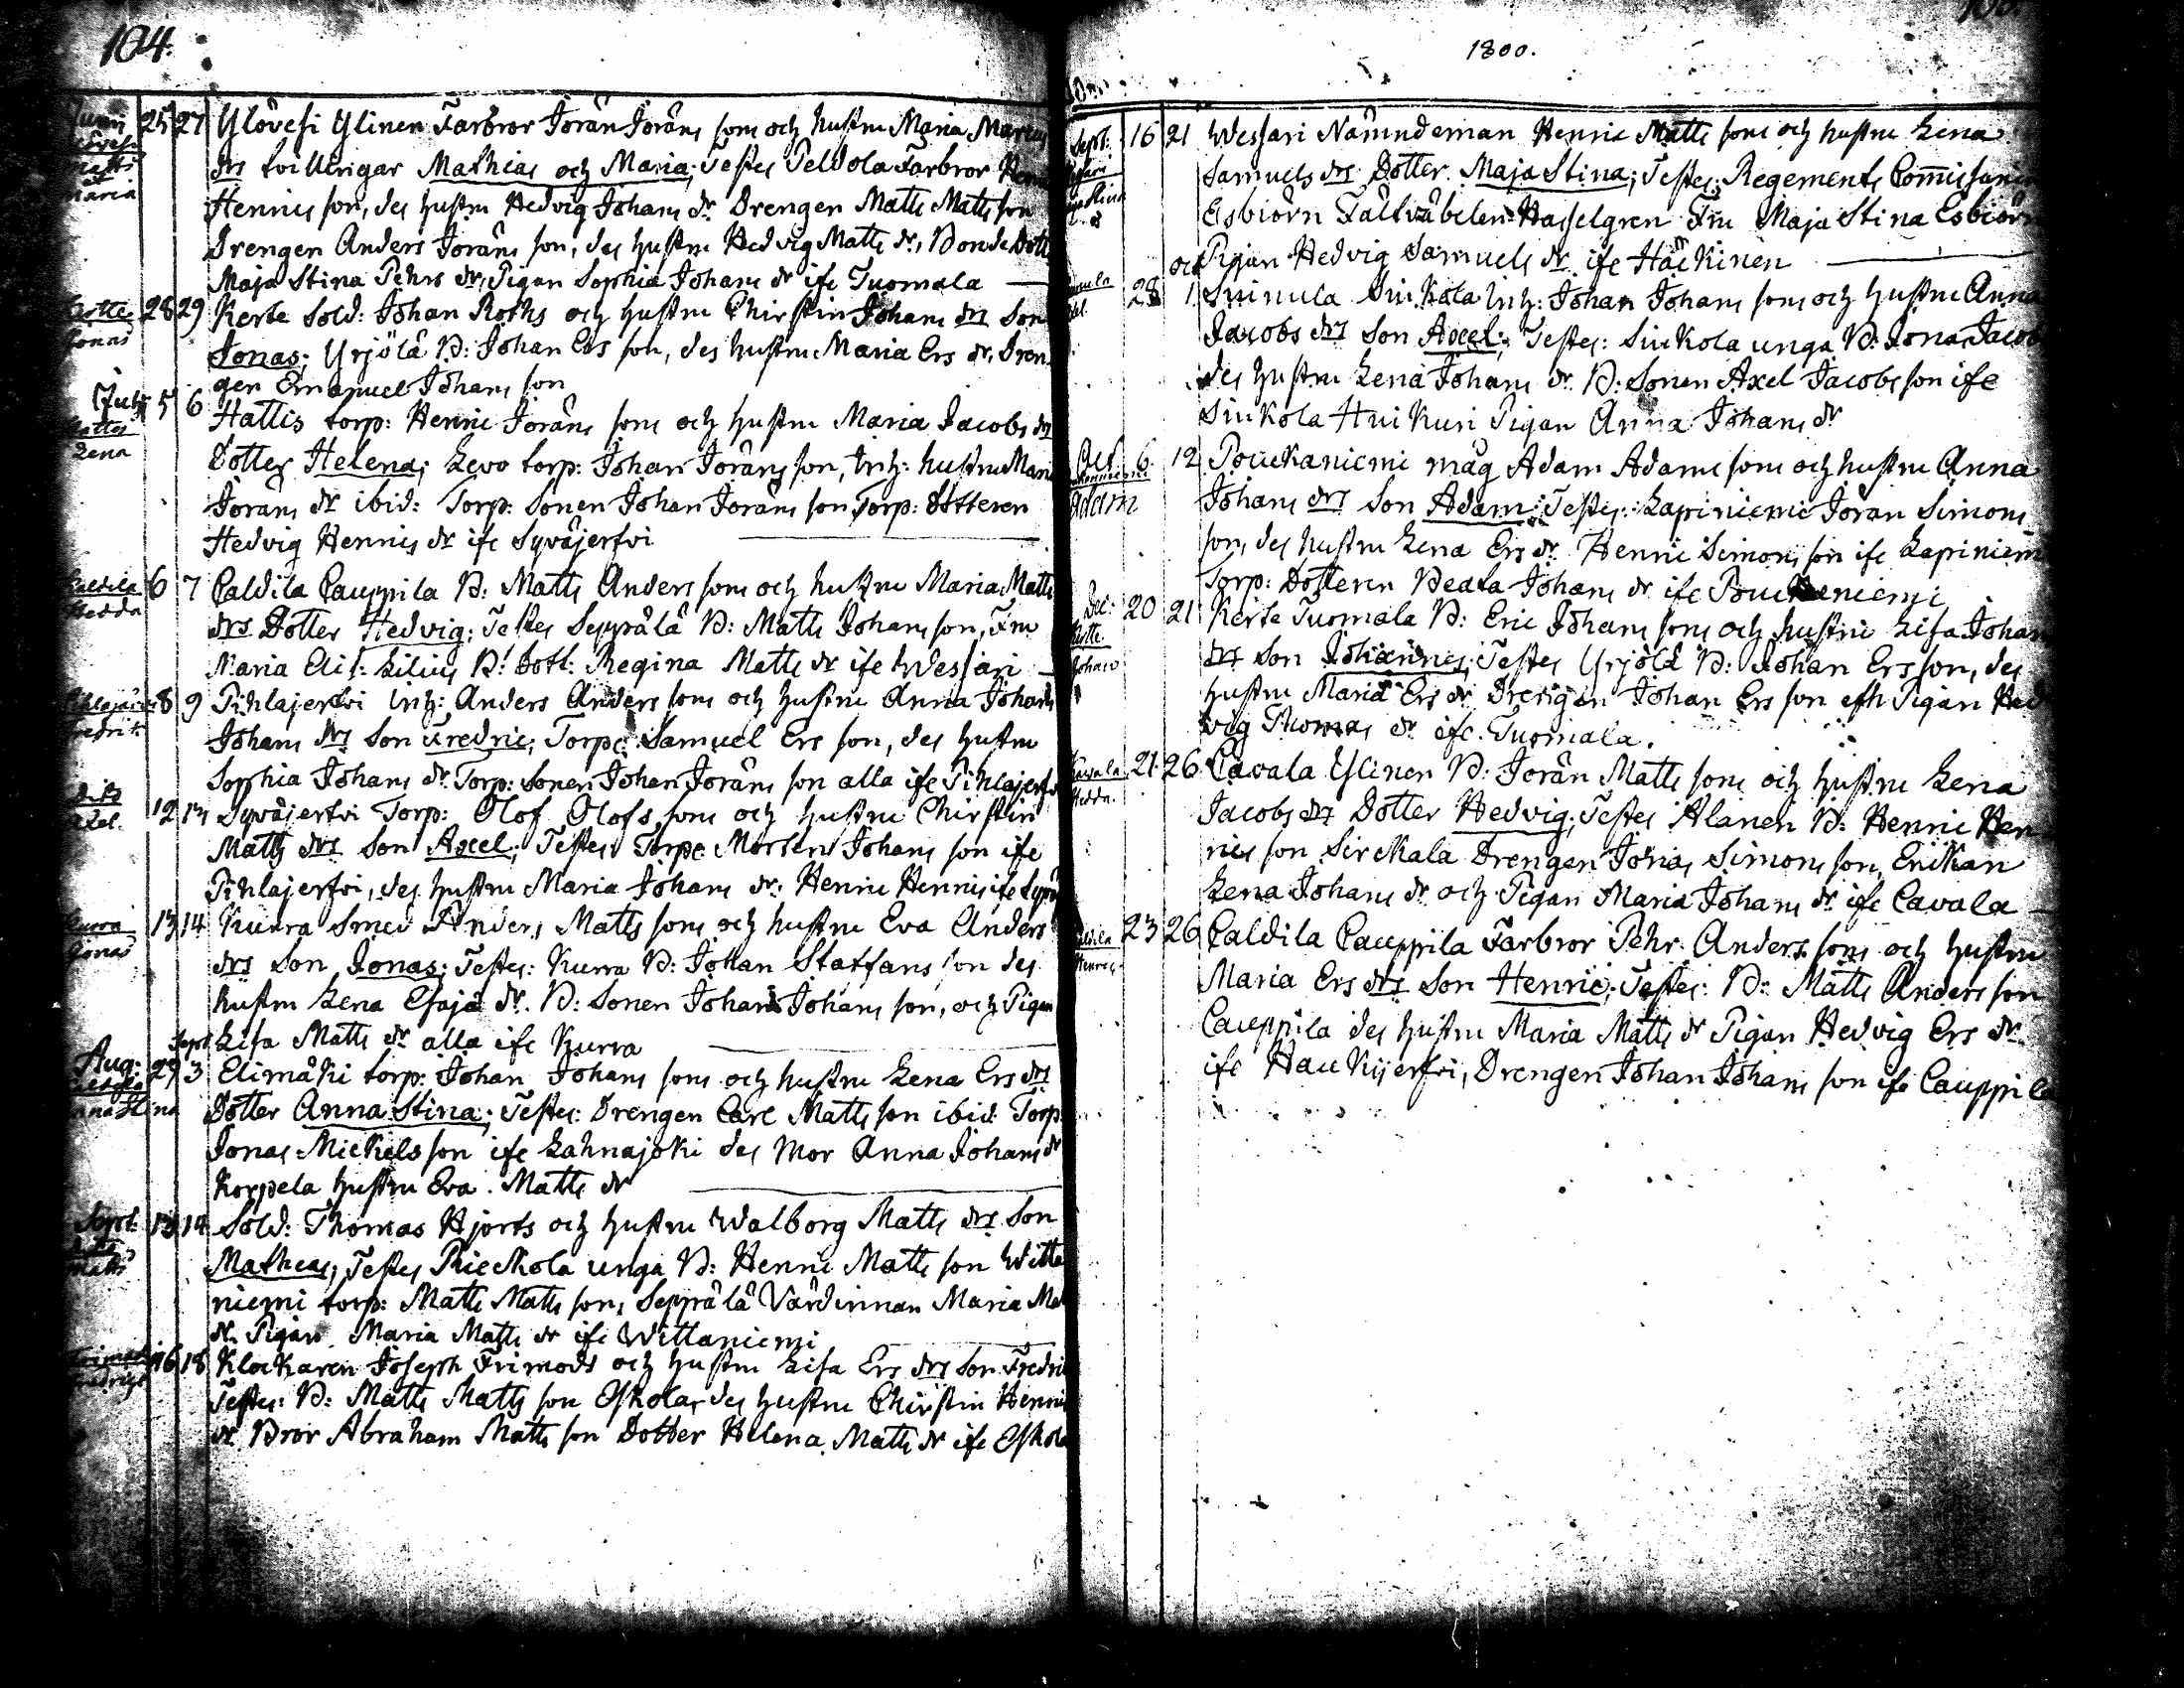 104.
Junii 25 27 Ylövesi Ylinen Farbror Jöran Jörans sons och hustru Maria Marcus
Matts et Maria drs tvillingar Mathias och Maria; Testes Peldola Farbror
Hennics son, des hustru Hedvig Johans dr Drengen Matts Matts son
Drengen Anders Jörans son, des hustru Hedvig Matts dr, Bonde Dott
Maja Stina Pehrs dr, Pigan Sophia Johans dr ifr Tuomala
28 29 Kerte Sold: Johan Roths och hustru Chirstin Johans drs Son
Jonas Jonas; Yrjölä B: Johan Ers son, des hustru Maria Ers dr, Dren
gen Emanuel Johans son
Julii 5 6 Hattis torp: Henric Jörans sons och hustru Maria Jacobs drs
Lena Dotter Helena; Levo torp: Johan Jörans son, Inh: hustru Maria
Jörans dr ibid: Torp: Sonen Johan Jörans son, Torp: Dotteren
Hedvig Hennics dr ifr Syväjerfvi
Caldila 6 7 Caldila Cauppila B: Matts Anders sons och hustru Maria Matts
Hedda drs Dotter Hedvig; Testes Seppälä B: Matts Johans son, Fru
Maria Elis: Lilius B: Dott: Regina Matts dr ifr Wessari
8 9 Pihlajerfvi Inh: Anders Anders sons och hustru Anna Johans
Fredric Johans drs Son Fredric; Torp: Samuel Ers son, des hustru
Sophia Johans dr Torp: Sonen Johan Jörans son alla ifr Pihlajerfvi
12 13 Syväjerfvi Torp: Olof Olofs sons och hustru Chirstin
Axel. Matts drs Son Axel; Testes Torp: Morten Johans son ifr
Pihlajerfvi, des hustru Maria Johans dr: Henric Hennics ifr Syvä
Kurra 13 14 Kurra Smed Anders Matts sons och hustru Eva Anders
Jonas drs Son Jonas; Testes: Kurra B: Johan Staffans son des
hustru Lena Esaja dr. B: Sonen Johan Johans son, och Pigan
Lisa Matts dr alla ifr Kurra
Aug: 29 Sept. 3 Elimäki torp: Johan Johans sons och hustru Lena Ers drs
Anna Stina Dotter Anna Stina; Testes: Drengen Carl Matts son ibid: Torp:
Jonas Mickels son ifr Lahnajoki des Mor Anna Johans dr
Korpela hustru Eva Matts dr
Sept: 13 14 Sold: Thomas Hjorts och hustru Walborg Matts drs Son
Matts Matheas; Testes Rieckola unga B: Henric Matts son Witta
niemi torp: Matts Matts son, Seppälä Värdinnan Maria Mat
dr. Pigan Maria Matts dr ifr Wittaniemi
16 18 Klockaren Joseph Frimods och hustru Lisa Ers drs Son Fredric
Testes: B: Matts Matts son Eskola, des hustru Chirstin Hennics
dr Bror Abraham Matts son Dotter Helena Matts dr ifr Eskola
1800.
Sept: 16 21 Wessari Nämndeman Henric Matts sons och hustru Lena
Samuels drs Dotter Maja Stina; Testes: Regements Commissarien
Esbiörn Fältväbelen Hasselgren Fru Maja Stina Esbiörn
Pigan Hedvig Samuels dr ifr Häckinen
28 Oct 1 Sinkola Inh: Johan Johans sons och hustru Anna
Jacobs drs Son Axel; Testes: Sinkola unga B: Jonas Jacobs
des hustru Lena Johans dr B: Sonen Axel Jacobs son ifr
Sinkola Huikuri Pigan Anna Johans dr
Oct 6 12 Pouckaniemi måg Adam Adams sons och hustru Anna
Adam Johans drs Son Adam; Testes: Lapiniemi Jöran Simons
son, des hustru Lena Ers dr Henric Simons son ifr Lapiniemi
Torp: Dotteren Beata Johans dr ifr Pouckaniemi
Dec: 20 21 Kerte Tuomala B: Eric Johans sons och hustru Lisa Johans
Johan drs Son Johannes; Testes Yrjölä B: Johan Ers son, des
hustru Maria Ers dr Drengen Johan Ers son och Pigan Hed
vig Thomas dr ifr Tuomala.
Kavala 21 26 Cavala Ylinen B: Jöran Matts sons och hustru Lena
Hedda. Jacobs drs Dotter Hedvig; Testes Alanen B: Henric Hen
nics son Sirckala Drengen Jonas Simons son, Enckan
Lena Johans dr och Pigan Maria Johans dr ifr Cavala
23 26 Caldila Cauppila Farbror Pehr Anders sons och hustru
Henric Maria Ers drs Son Henric; Testes: B: Matts Anders son
Cauppila des hustru Maria Matts dr Pigan Hedvig Ers dr
ifr Hauckijerfvi, Drengen Johan Johans son ifr Cauppila